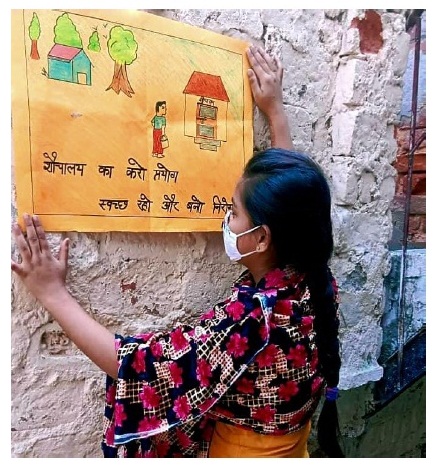 शौचालय का करो उपयोग
स्वच्छ रहो और बनो